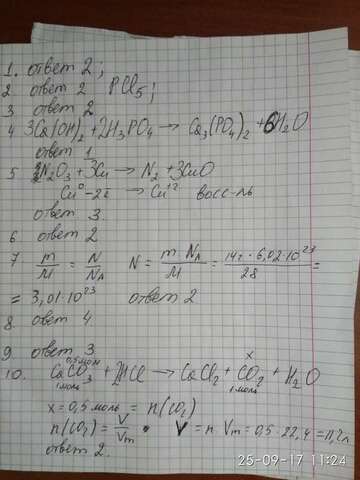 1. ответ 2;
2. ответ 2 PCl₅;
3 ответ 2
4 3Ca(OH)₂ + 2H₃PO₄ → Ca₃(PO₄)₂ + 6H₂O
ответ 1
5 N₂O₃ + 3Cu → N₂ + 3CuO
Cu⁰ - 2ē → Cu⁺² восс-ль
ответ 3.
6 ответ 2
7 m/M = N/Nₐ N = m Nₐ/M = 14г · 6,02·10²³/28 =
= 3,01·10²³ ответ 2
8. ответ 4.
9. ответ 3
0,5моль x
10. CaCO₃ + 2HCl → CaCl₂ + CO₂ + H₂O
1моль 1моль
x = 0,5 моль = n(CO₂)
n(CO₂) = V/Vm V = n Vm = 0,5 · 22,4 = 11,2л
ответ 2.
25-09-17 11:24